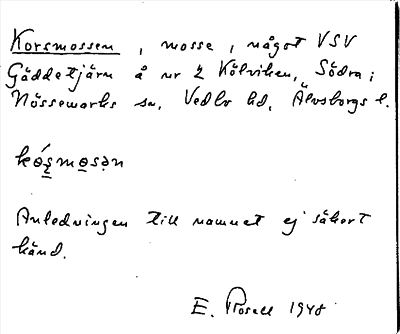 Korsmossen, mosse, något VSV
Gäddetjärn å nr 2 Kölviken, Södra;
Nössemarks sn, Vedbo hd, Älvsborgs l.
Anledningen till namnet ej säkert
känd.
E. Rosell 1948